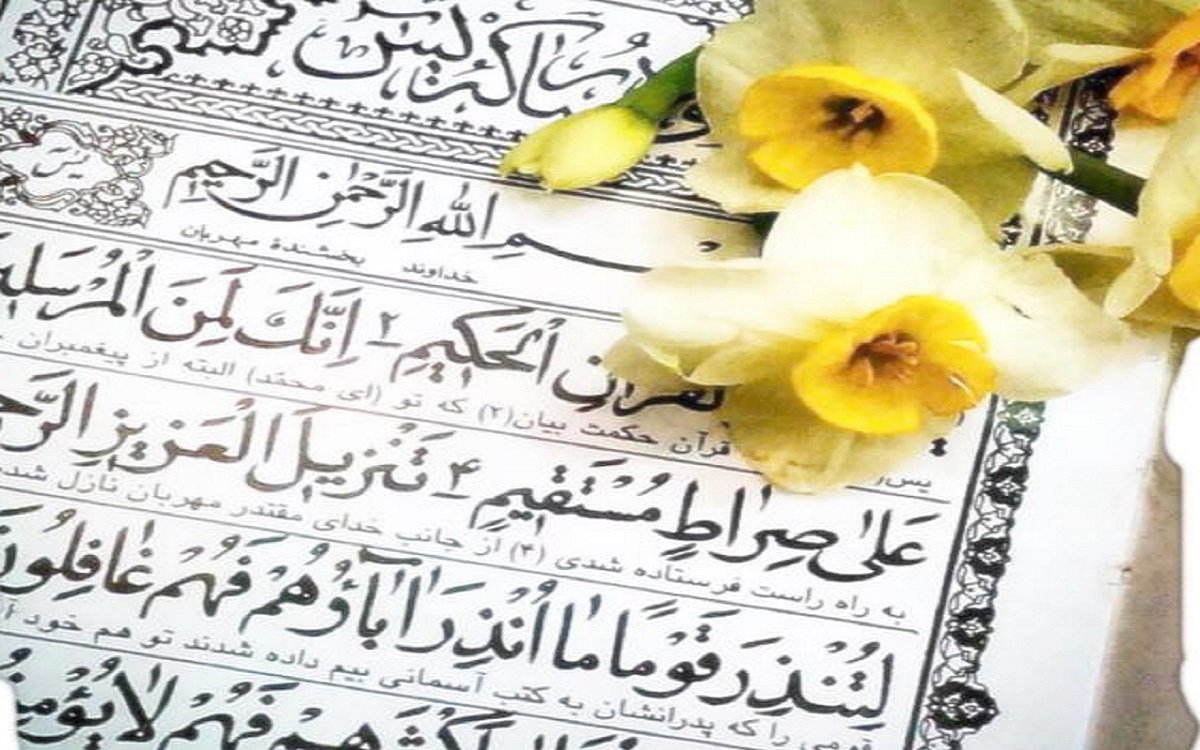 سورة مباركة يس
يس
بِسْمِ اللهِ الرَّحْمٰنِ الرَّحيمِ
خداوند بخشندهٔ مهربان
الْحَكيمِ ۲ اِنَّكَ لَمِنَ الْمُرْسَلـ
يس قرآن حکمت بیان(۲) که تو (ای محمّد) البته از پیغمبران
عَلىٰ صِراطٍ مُسْتَقيمٍ ۴ تَنْزيلَ الْعَزيزِ الرَّحـ
به راه راست فرستاده شدی (۴) از جانب خدای مقتدر مهربان نازل شده
لِتُنْذِرَ قَوْمًا ما اُنْذِرَ اٰبآؤُهُمْ فَهُمْ غافِلُونَ
قومی را که پدرانشان به کتب آسمانی بیم داده شدند تو هم خود
فَهُمْ لا يُؤْمِنُـ